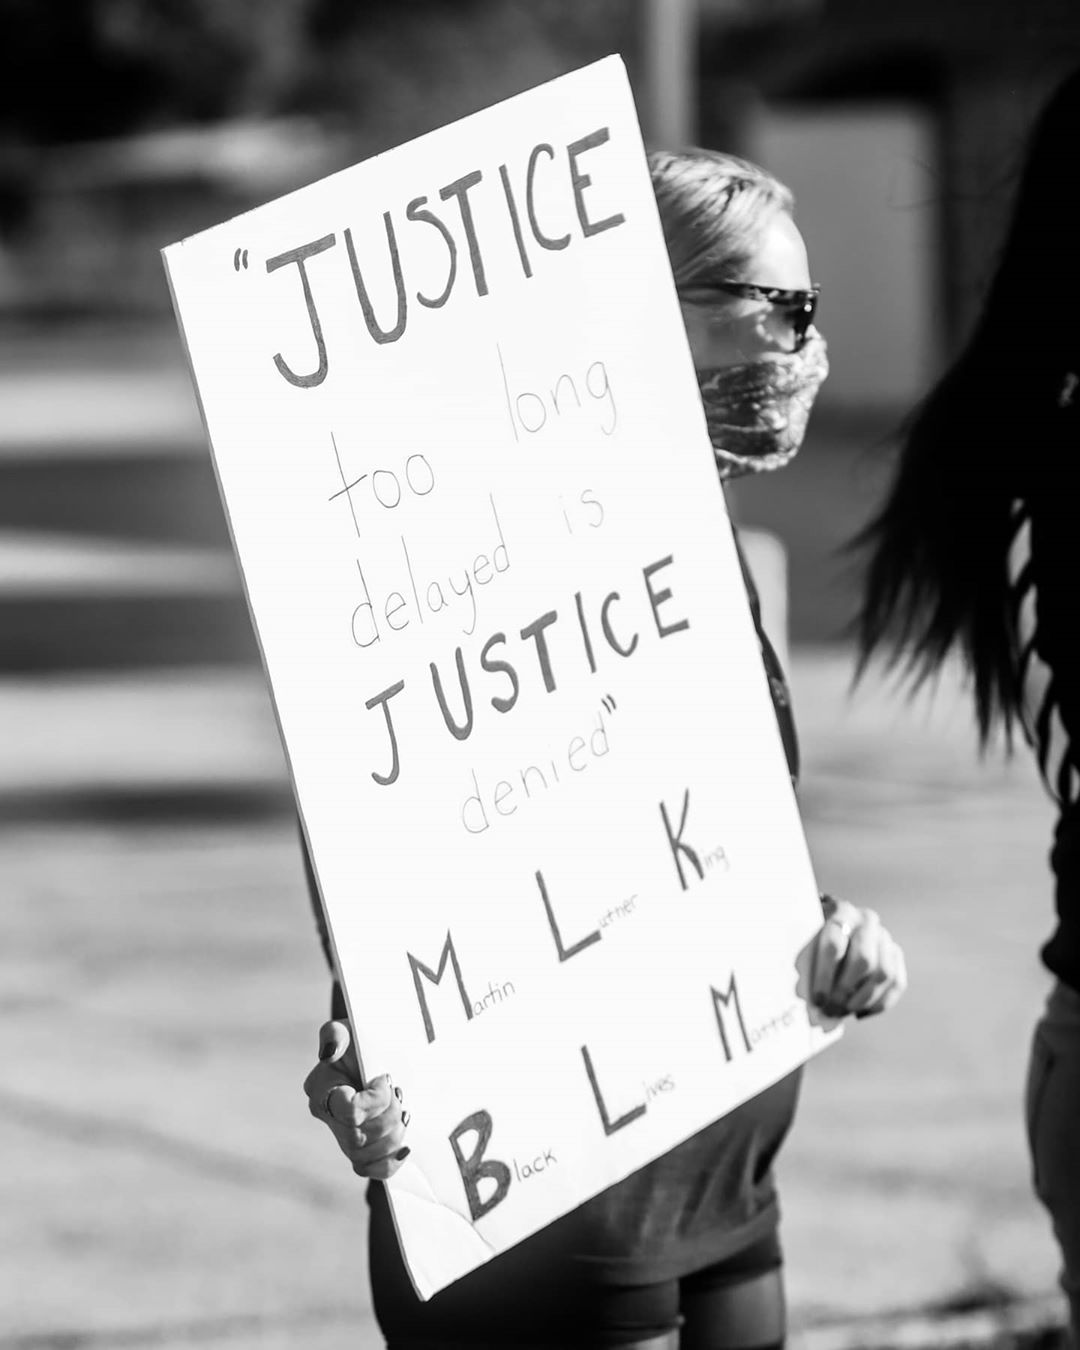 "JUSTICE
too long
delayed is
JUSTICE
denied"
Martin Luther King
Black Lives Matter